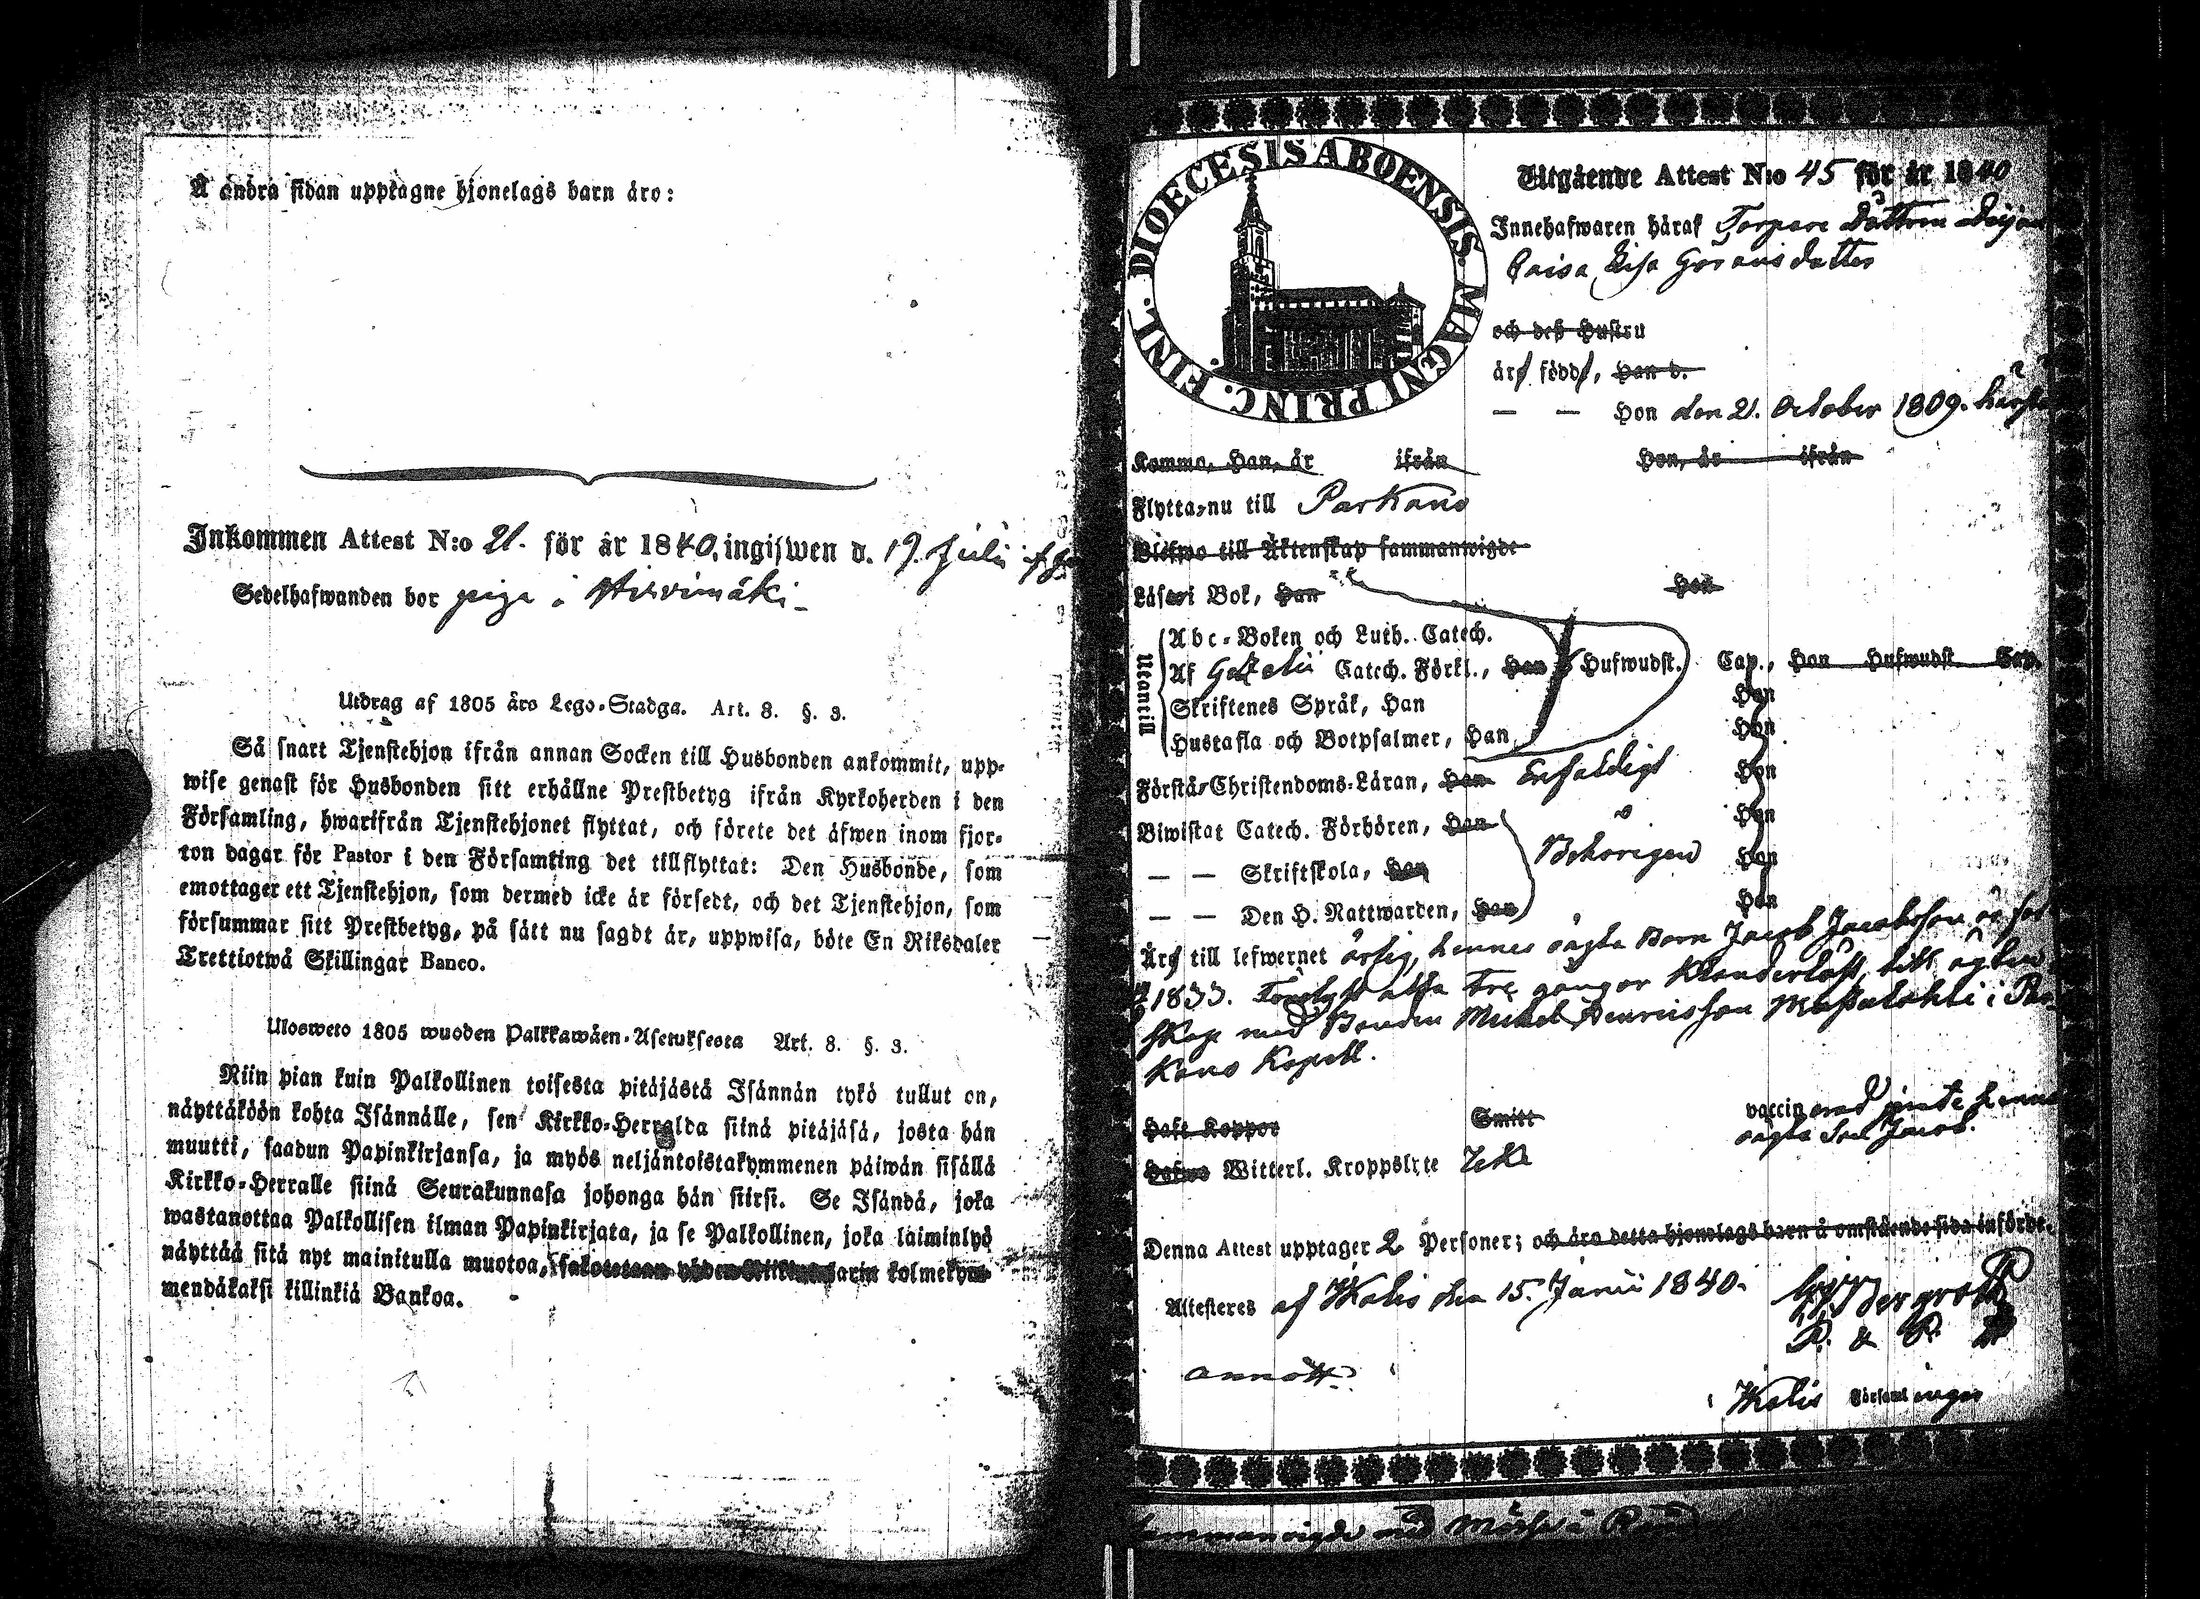 Å andra sidan upptagne hjonelags barn äro:
Inkommen Attest N:o 21. för år 1840, ingifwen d. 19. Juli
Sedelhafwanden bor piga i
Utdrag af 1805 års Lego-Stadga. Art. 8. §. 3.
Så snart Tjenstehjon ifrån annan Socken till Husbonden ankommit, upp-
wise genast för Husbonden sitt erhållne Prestbetyg ifrån Kyrkoherden i den
Församling, hwarifrån Tjenstehjonet flyttat, och förete det äfwen inom fjor-
ton dagar för Pastor i den Församling det tillflyttat: Den Husbonde, som
emottager ett Tjenstehjon, som dermed icke är försedt, och det Tjenstehjon, som
försummar sitt Prestbetyg, på sätt nu sagdt är, uppwisa, böte En Riksdaler
Trettiotwå Skillingar Banco.
Ulosweto 1805 wuoden Palkkawäen-Asetuksesta Art. 8. §. 3.
Niin pian kuin Palkollinen toisesta pitäjästä Isännän tykö tullut on,
näyttäköön kohta Isännälle, sen Kirkko-Herralda siinä pitäjäsä, josta hän
muutti, saadun Papinkirjansa, ja myös neljäntoistakymmenen päiwän sisällä
Kirkko-Herralle siinä Seurakunnasa johonga hän siirsi. Se Isändä, joka
wastanottaa Palkollisen ilman Papinkirjata, ja se Palkollinen, joka laiminlyö
näyttää sitä nyt mainitulla muotoa, sakotetaan kolmekym-
mendäkaksi killinkiä Bankoa.
DIOECESIS ABOENSIS MAGNI PRINC. FINL.
Utgående Attest N:o 45 för år 1840
Innehafwaren häraf Torpare Dottren Pigan
Caisa Lisa Görans dotter
och deß Hustru
är född, Han d.
— — Hon den 21. October 1809. härst
Komma, Han, år ifrån Hon, år ifrån
Flytta, nu till Parkano
Blifwo till Äktenskap sammanwigde
Läser i Bok, Han Hon
Utantill
Abc-Boken och Luth. Catech.
Af Catech. Förkl., Han Hufwudst. Cap., Hon Hufwudst. Cap.
Skriftenes Språk, Han Hon
Hustafla och Botpsalmer, Han Hon
Förstå Christendoms-Läran, Han Enfaldigt Hon
Biwistat Catech. Förhören, Han Hon
— — Skriftskola, Han Behörigen Hon
— — Den H. Nattwarden, Han Hon
Är till lefwernet ärlig, hennes oägta Barn Jacob Jacobsson
1833. Tre gångor
skap med Bonden Michel Henricsson i Par
kano Kapell.
Haft Koppor Smitt vaccin
oägta Son Jacob.
Hafwa Witterl. Kroppslyte Icke
Denna Attest upptager 2 Personer; och äro detta hjonelags barn å omstående sida införde.
Attesteres af Ikalis den 15. Junii 1840.
P. & P.
Ikalis Församlingar
sammanvigde med